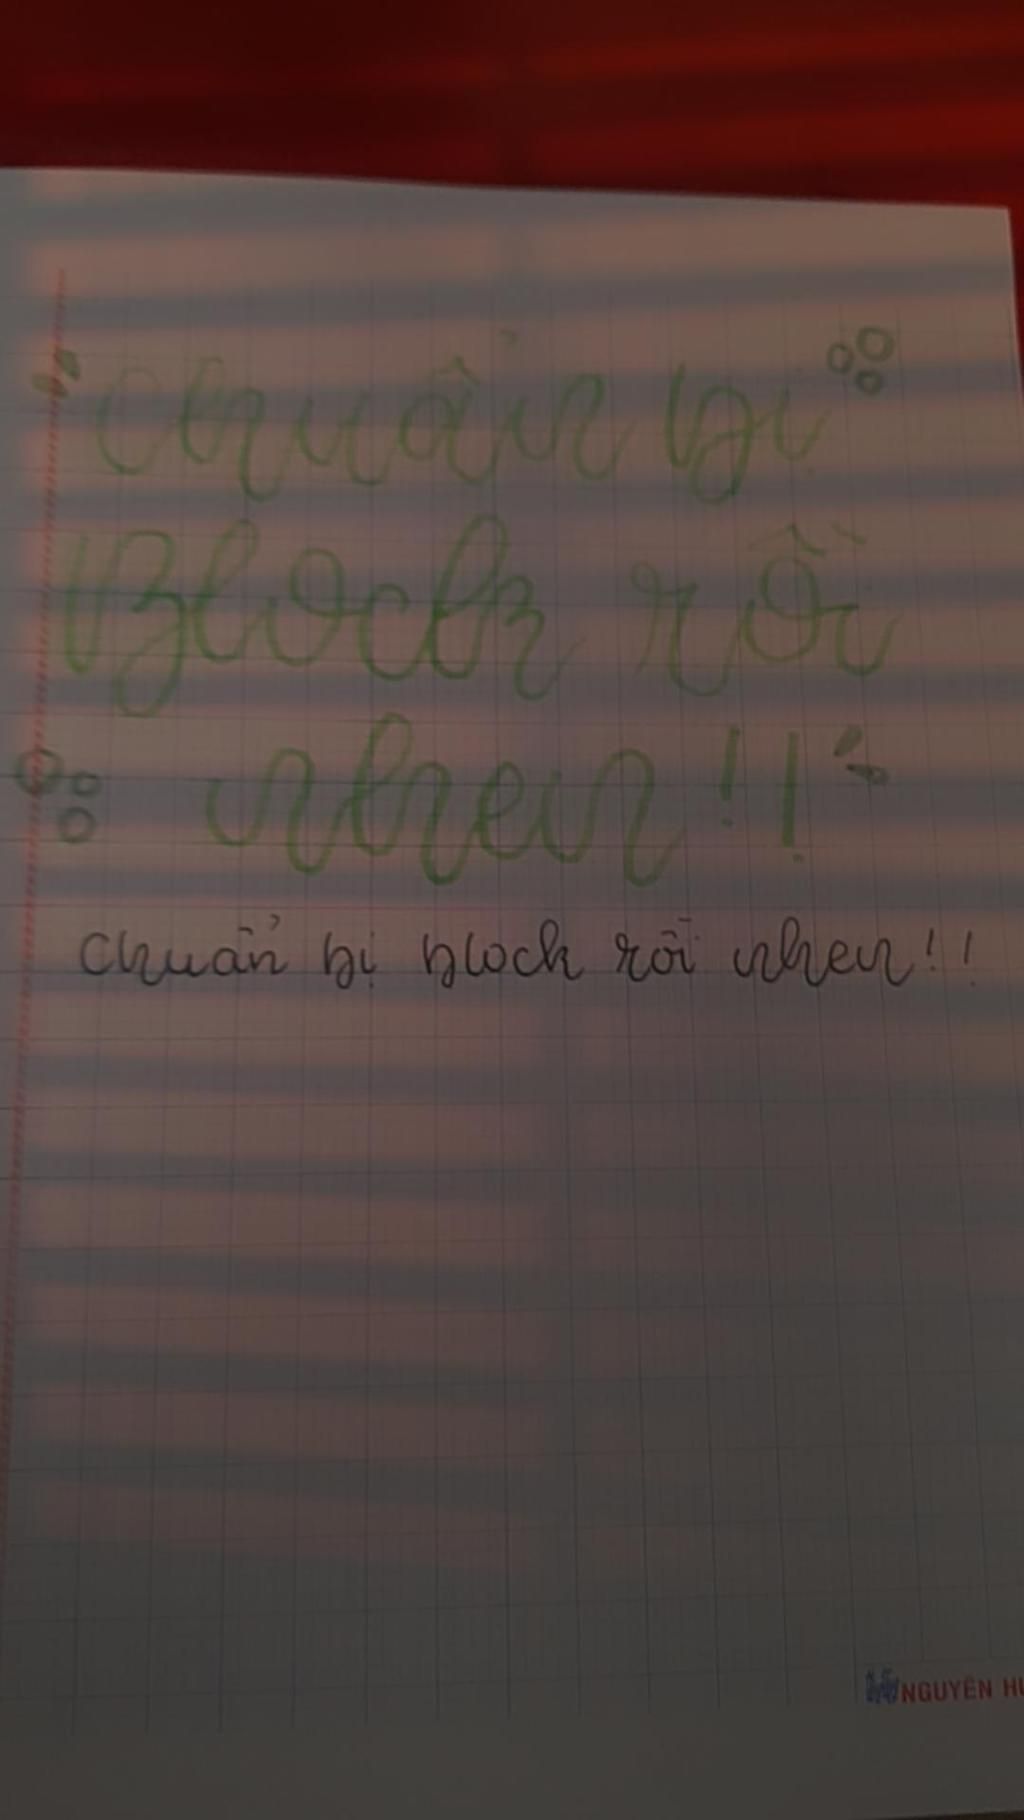 Chuẩn bị
Block rồi
nhen!!
Chuẩn bị block rồi nhen!!
NGUYÊN HƯ